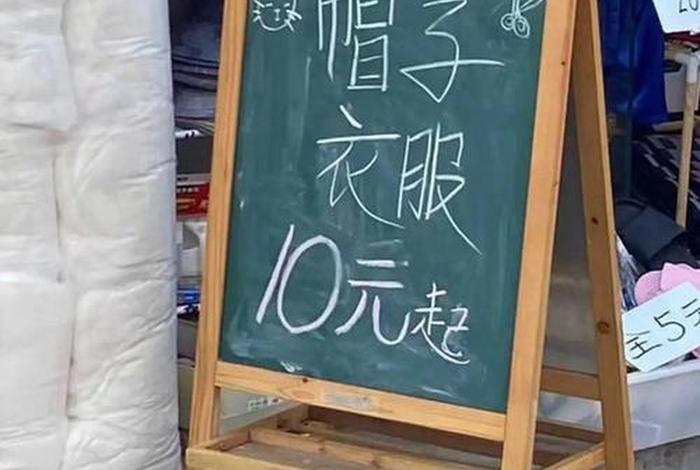 帽子
衣服
10元起
全5元